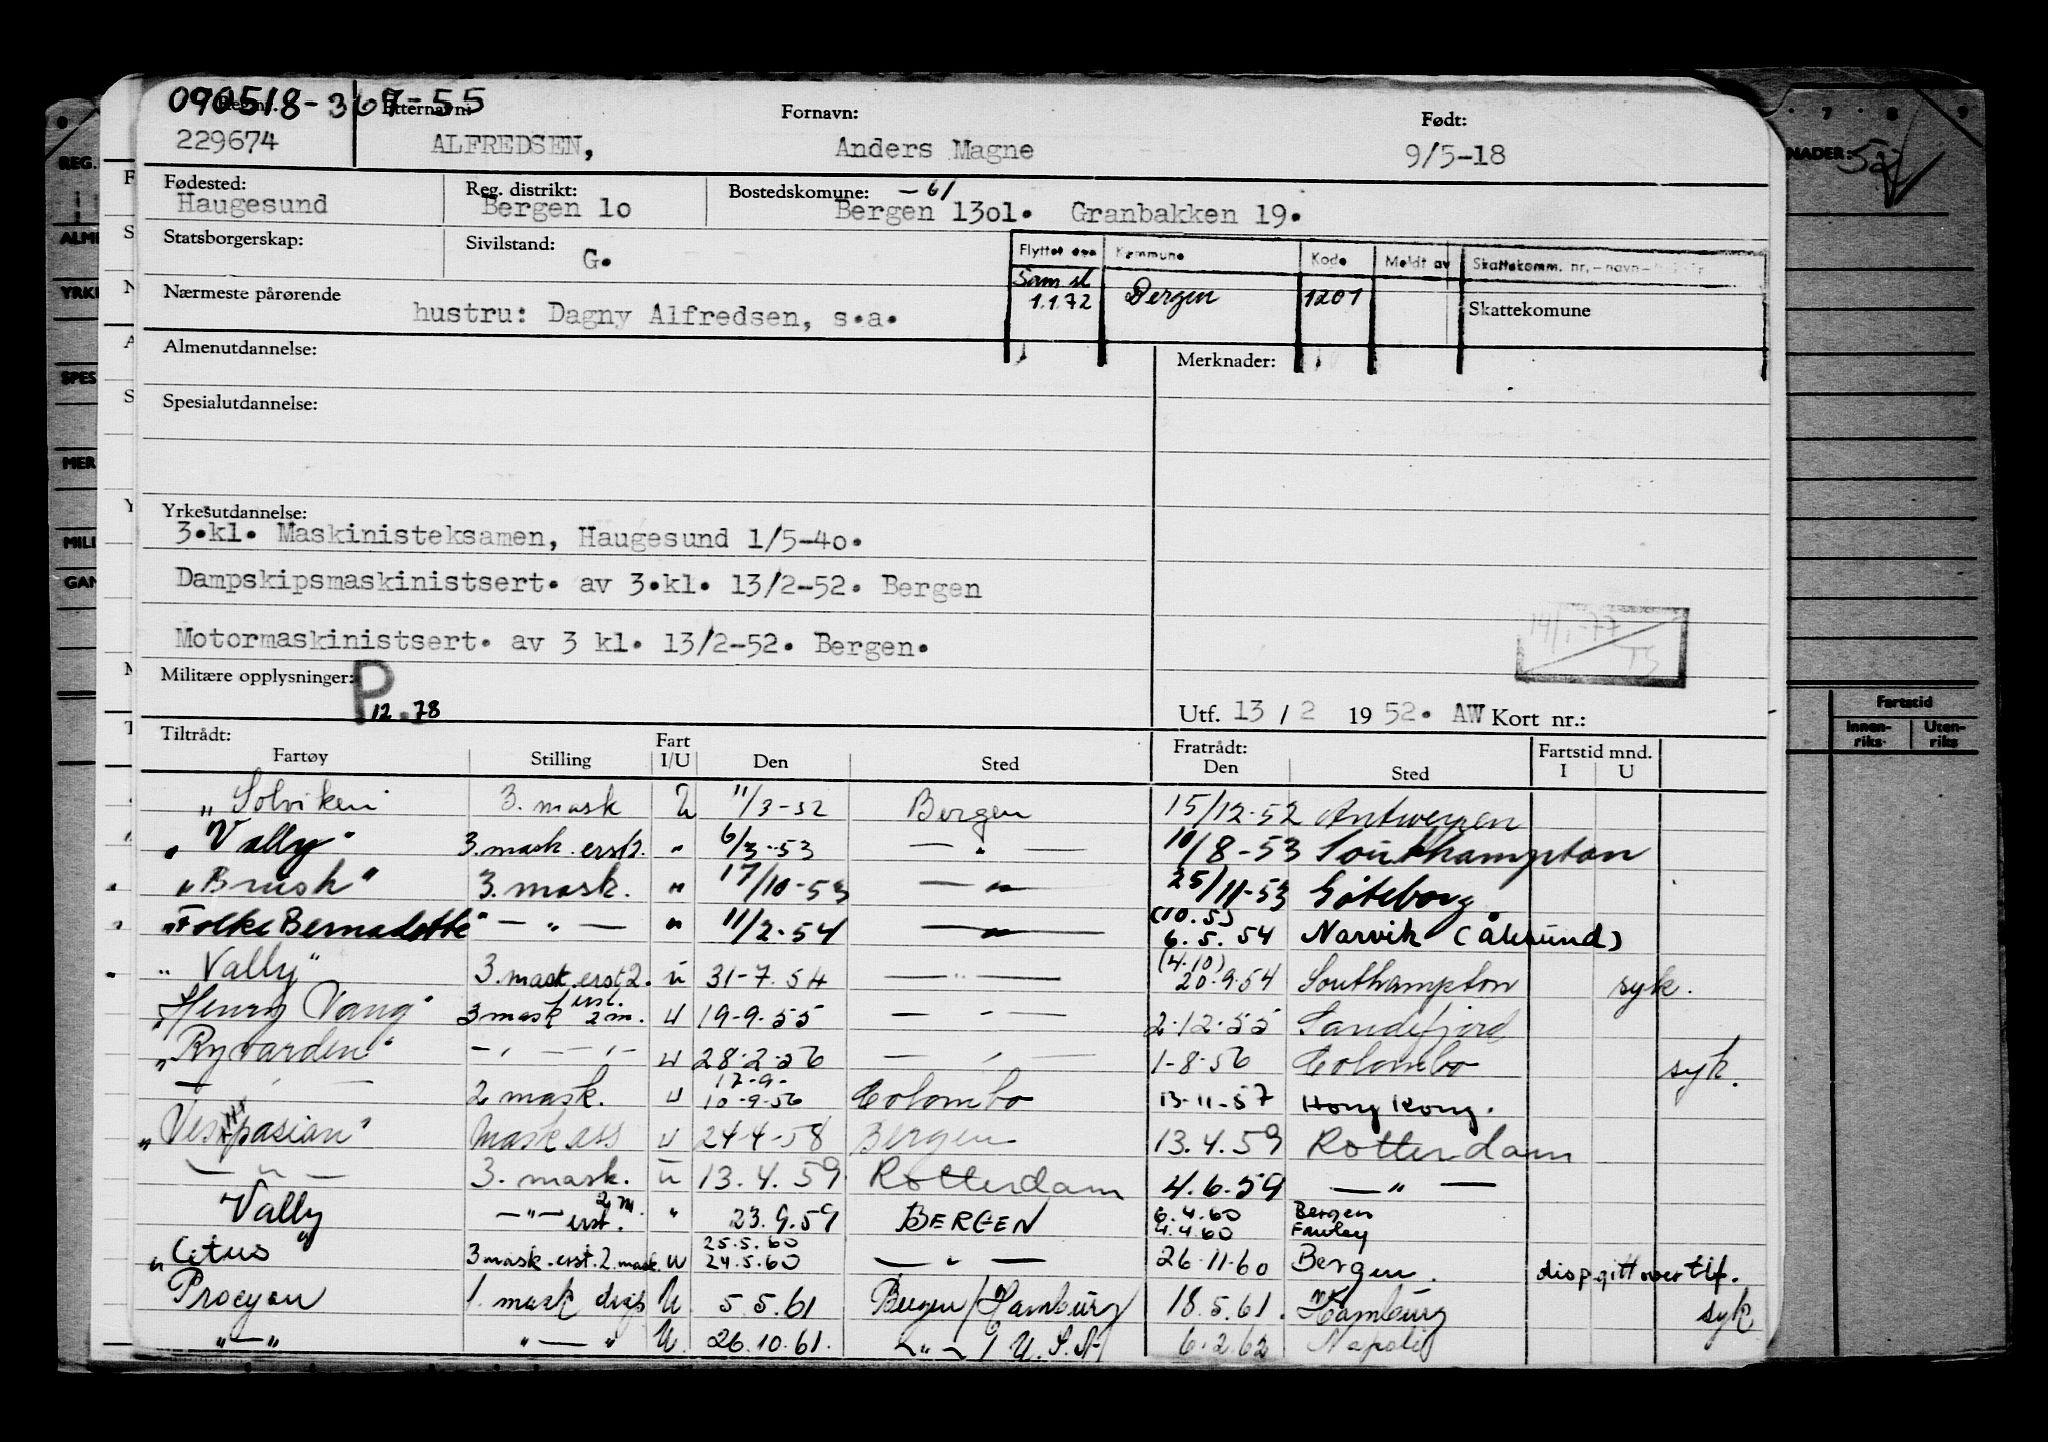 090518-36 -55
Reg.nr. Etternavn: Fornavn: Født:
229674 ALFREDSEN, Anders Magne 9/5-18
Fødested: Reg. distrikt: Bostedskomune: -61
Haugesund Bergen 1o Bergen 13o1. Granbakken 19.
Statsborgerskap: Sivilstand: G.
Flyttet den Kommune Kode Meldt av Skattekomm. nr.-navn-
Sam.sl
1.1.72 Bergen 1201
Nærmeste pårørende Skattekomune
hustru: Dagny Alfredsen, s.a.
Almenutdannelse: Merknader:
Spesialutdannelse:
Yrkesutdannelse:
3.kl. Maskinisteksamen, Haugesund 1/5-4o.
Dampskipsmaskinistsert. av 3.kl. 13/2-52. Bergen
Motormaskinistsert. av 3 kl. 13/2-52. Bergen.
14/1-77
TS
Militære opplysninger: P
12.78
Utf. 13 / 2 19 52. AW Kort nr.:
Tiltrådt: Fart Fratrådt: Fartstid mnd.
Fartøy Stilling I/U Den Sted Den Sted I U
"Solviken" 3. mask U 11/3-52 Bergen 15/12-52 Antwerpen
"Vally" 3.mask.erst2. " 6/3-53 — " — 10/8-53 Southampton
"Brush" 3. mask. " 17/10-53 — " — 25/11-53 Göteborg
(10.5)
"Folke Bernadotte" — " — " 11/2-54 — " — 6.5.54 Narvik (Ålesund)
(4.10)
"Vally" 3.mask.erst2. U 31-7.54 — " — 20.9.54 Southampton syk.
"Henry Vang" 3mask erst. 2m. U 19-9-55 — " — 2-12-55 Sandefjord
"Ryvarden" — " — " — U 28-2-56 — " — 1-8-56 Colombo syk.
17-9-
— " — 2 mask. U 10-9-56 Colombo 13-11-57 Hong Kong.
"Vespasian" Mask ass U 24-4-58 Bergen 13.4.59 Rotterdam
— " — 3. mask. U 13.4.59 Rotterdam 4.6.59 — " —
Vally — " — erst. 2.m. " 23.9.59 BERGEN 6.4.60 Bergen
4.4.60 Fawley
25.5.60
"Cetus" 3mask.erst.2.mask. U 24.5.60 — " — 26.11.60 Bergen. disp gitt over tlf.
Procyon 1. mask disp U 5.5.61 Bergen/Hamburg 18.5.61. Hamburg syk
" — " " — " U. 26.10.61. — " — / U.S.A 6.2.62 Napoli
REG.
ALME
YRKE
SPES
MER
MILI
GAN
7 8 9
NADER: 52
Fartstid
Innen-riks Uten-riks